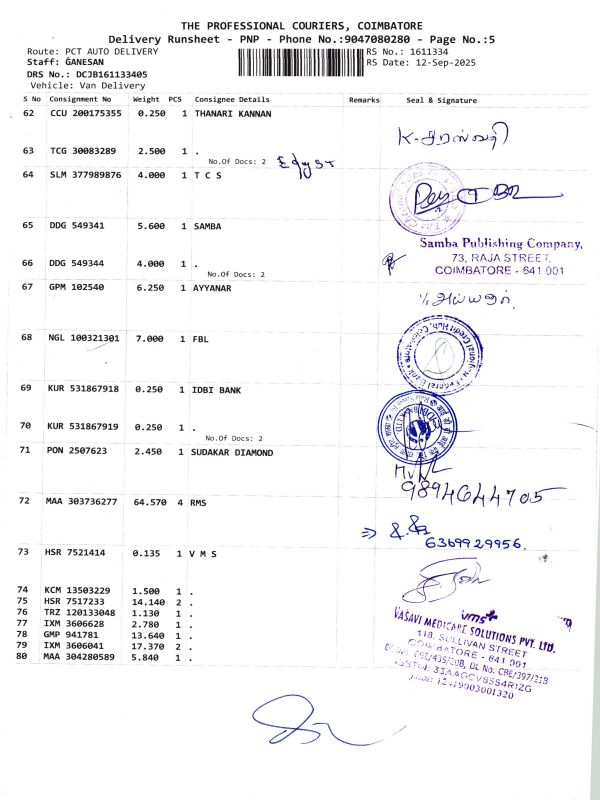 THE PROFESSIONAL COURIERS, COIMBATORE
Delivery Runsheet - PNP - Phone No.:9047080280 - Page No.:5
Route: PCT AUTO DELIVERY RS No.: 1611334
Staff: GANESAN RS Date: 12-Sep-2025
DRS No.: DCJB161133405
Vehicle: Van Delivery
S No Consignment No Weight PCS Consignee Details Remarks Seal & Signature
62 CCU 200175355 0.250 1 THANARI KANNAN
K. சரஸ்வதி
63 TCG 30083289 2.500 1 .
No.Of Docs: 2
64 SLM 377989876 4.000 1 T C S
65 DDG 549341 5.600 1 SAMBA
Samba Publishing Company,
73, RAJA STREET,
COIMBATORE - 641 001
66 DDG 549344 4.000 1 .
No.Of Docs: 2
67 GPM 102540 6.250 1 AYYANAR
68 NGL 100321301 7.000 1 FBL
69 KUR 531867918 0.250 1 IDBI BANK
70 KUR 531867919 0.250 1 .
No.Of Docs: 2
71 PON 2507623 2.450 1 SUDAKAR DIAMOND
9894644705
72 MAA 303736277 64.570 4 RMS
6369929956.
73 HSR 7521414 0.135 1 V M S
74 KCM 13503229 1.500 1 .
75 HSR 7517233 14.140 2 .
76 TRZ 120133048 1.130 1 .
77 IXM 3606628 2.780 1 .
78 GMP 941781 13.640 1 .
79 IXM 3606041 17.370 2 .
80 MAA 304280589 5.840 1 .
vms
VASAVI MEDICARE SOLUTIONS PVT. LTD.
118, SULLIVAN STREET
COIMBATORE - 641 001